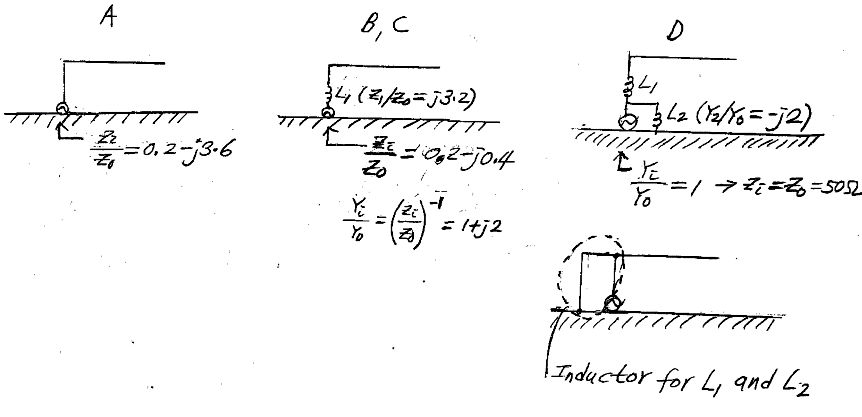 A
Z_i/Z_0 = 0.2 - j3.6
B, C
L_1 (Z_1/Z_0 = j3.2)
Z_i/Z_0 = 0.2 - j0.4
Y_i/Y_0 = (Z_i/Z_0)^-1 = 1 + j2
D
L_1
L_2 (Y_2/Y_0 = -j2)
Y_i/Y_0 = 1 → Z_i = Z_0 = 50Ω
Inductor for L_1 and L_2